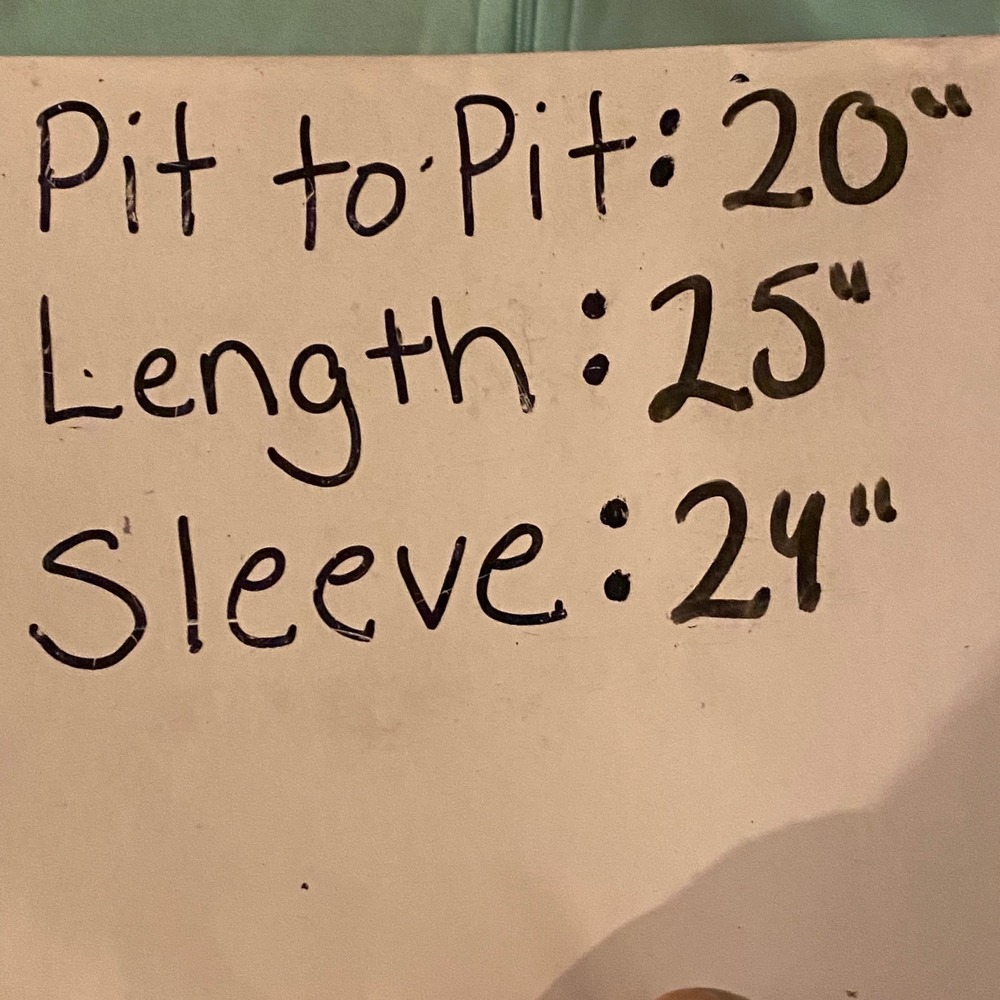 Pit to Pit: 20"
Length: 25"
Sleeve: 24"